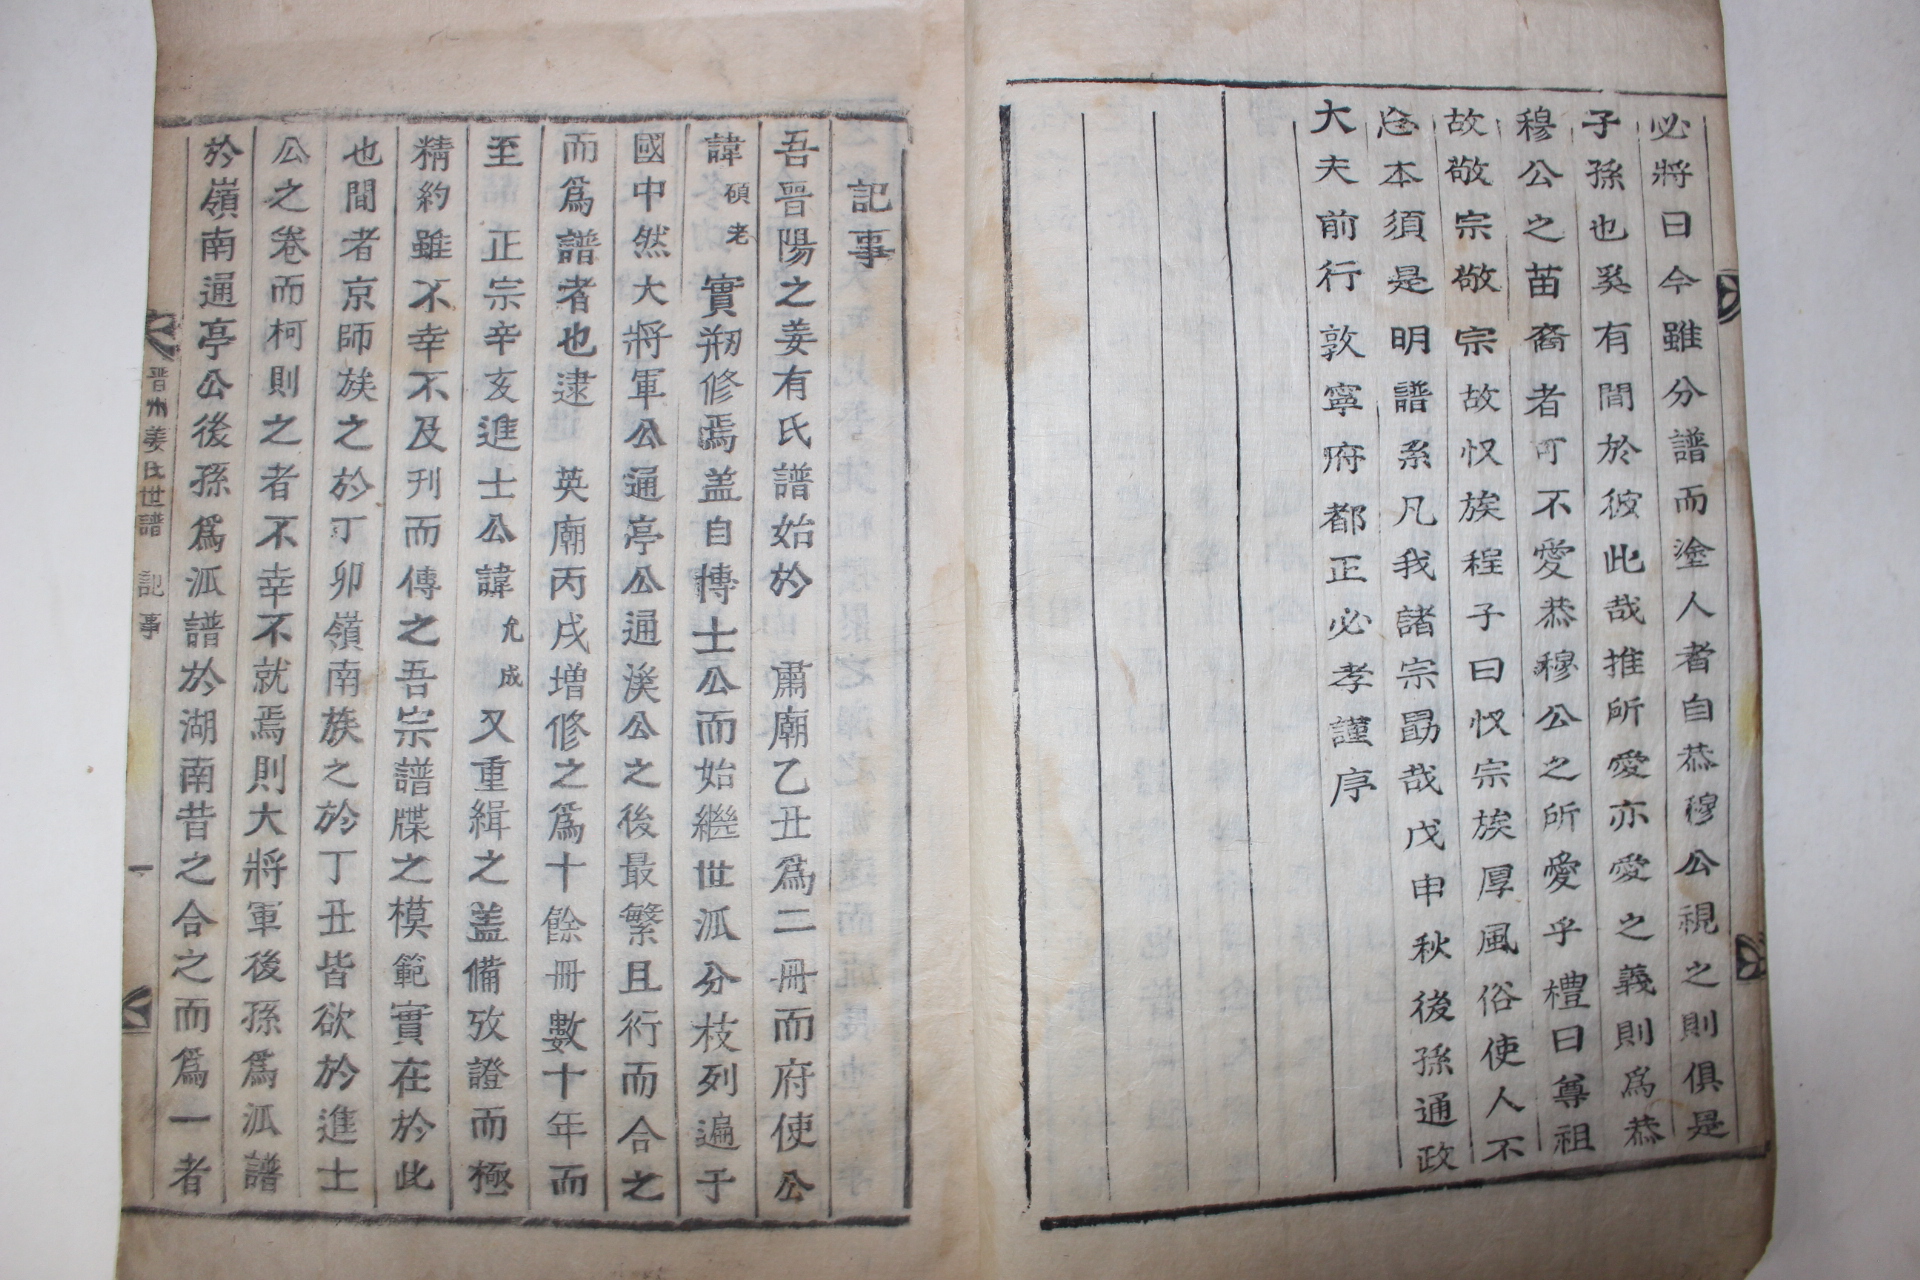 必將曰今雖分譜而塗人者自恭穆公視之則俱是
子孫也奚有間於彼此哉推所愛亦愛之義則爲恭
穆公之苗裔者可不愛恭穆公之所愛乎禮曰尊祖
故敬宗敬宗故收族程子曰收宗族厚風俗使人不
忘本須是明譜系凡我諸宗勗哉戊申秋後孫通政
大夫前行敦寧府都正必孝謹序
記事
吾晋陽之姜有氏譜始於 肅廟乙丑爲二冊而府使公
諱碩老 實刱修焉盖自博士公而始繼世派分枝列遍于
國中然大將軍公通亭公通溪公之後最繁且衍而合之
而爲譜者也逮 英廟丙戌增修之爲十餘冊數十年而
至 正宗辛亥進士公諱允成又重緝之盖備攷證而極
精約雖不幸不及刊而傳之吾宗譜牒之模範實在於此
也間者京師族之於丁卯嶺南族之於丁丑皆欲於進士
公之卷而柯則之者不幸不就焉則大將軍後孫爲派譜
於嶺南通亭公後孫爲派譜於湖南昔之合之而爲一者
晋州姜氏世譜 記事 一